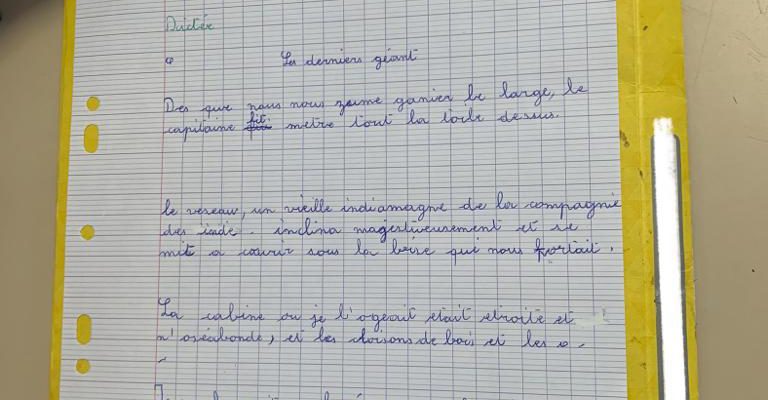 Dictée
Les derniers géant
Des que nous nous zeume ganier le large, le
capitaine fit metre tout la toile dessus.
le veseau, un vieille indiamagne de la compagnie
des inde. inclina magestiveusement et se
mit a courir sous la brise qui nous portait.
La cabine ou je l'ogeait était etroite et
n'oséabonde, et les cloisons de bois et les o